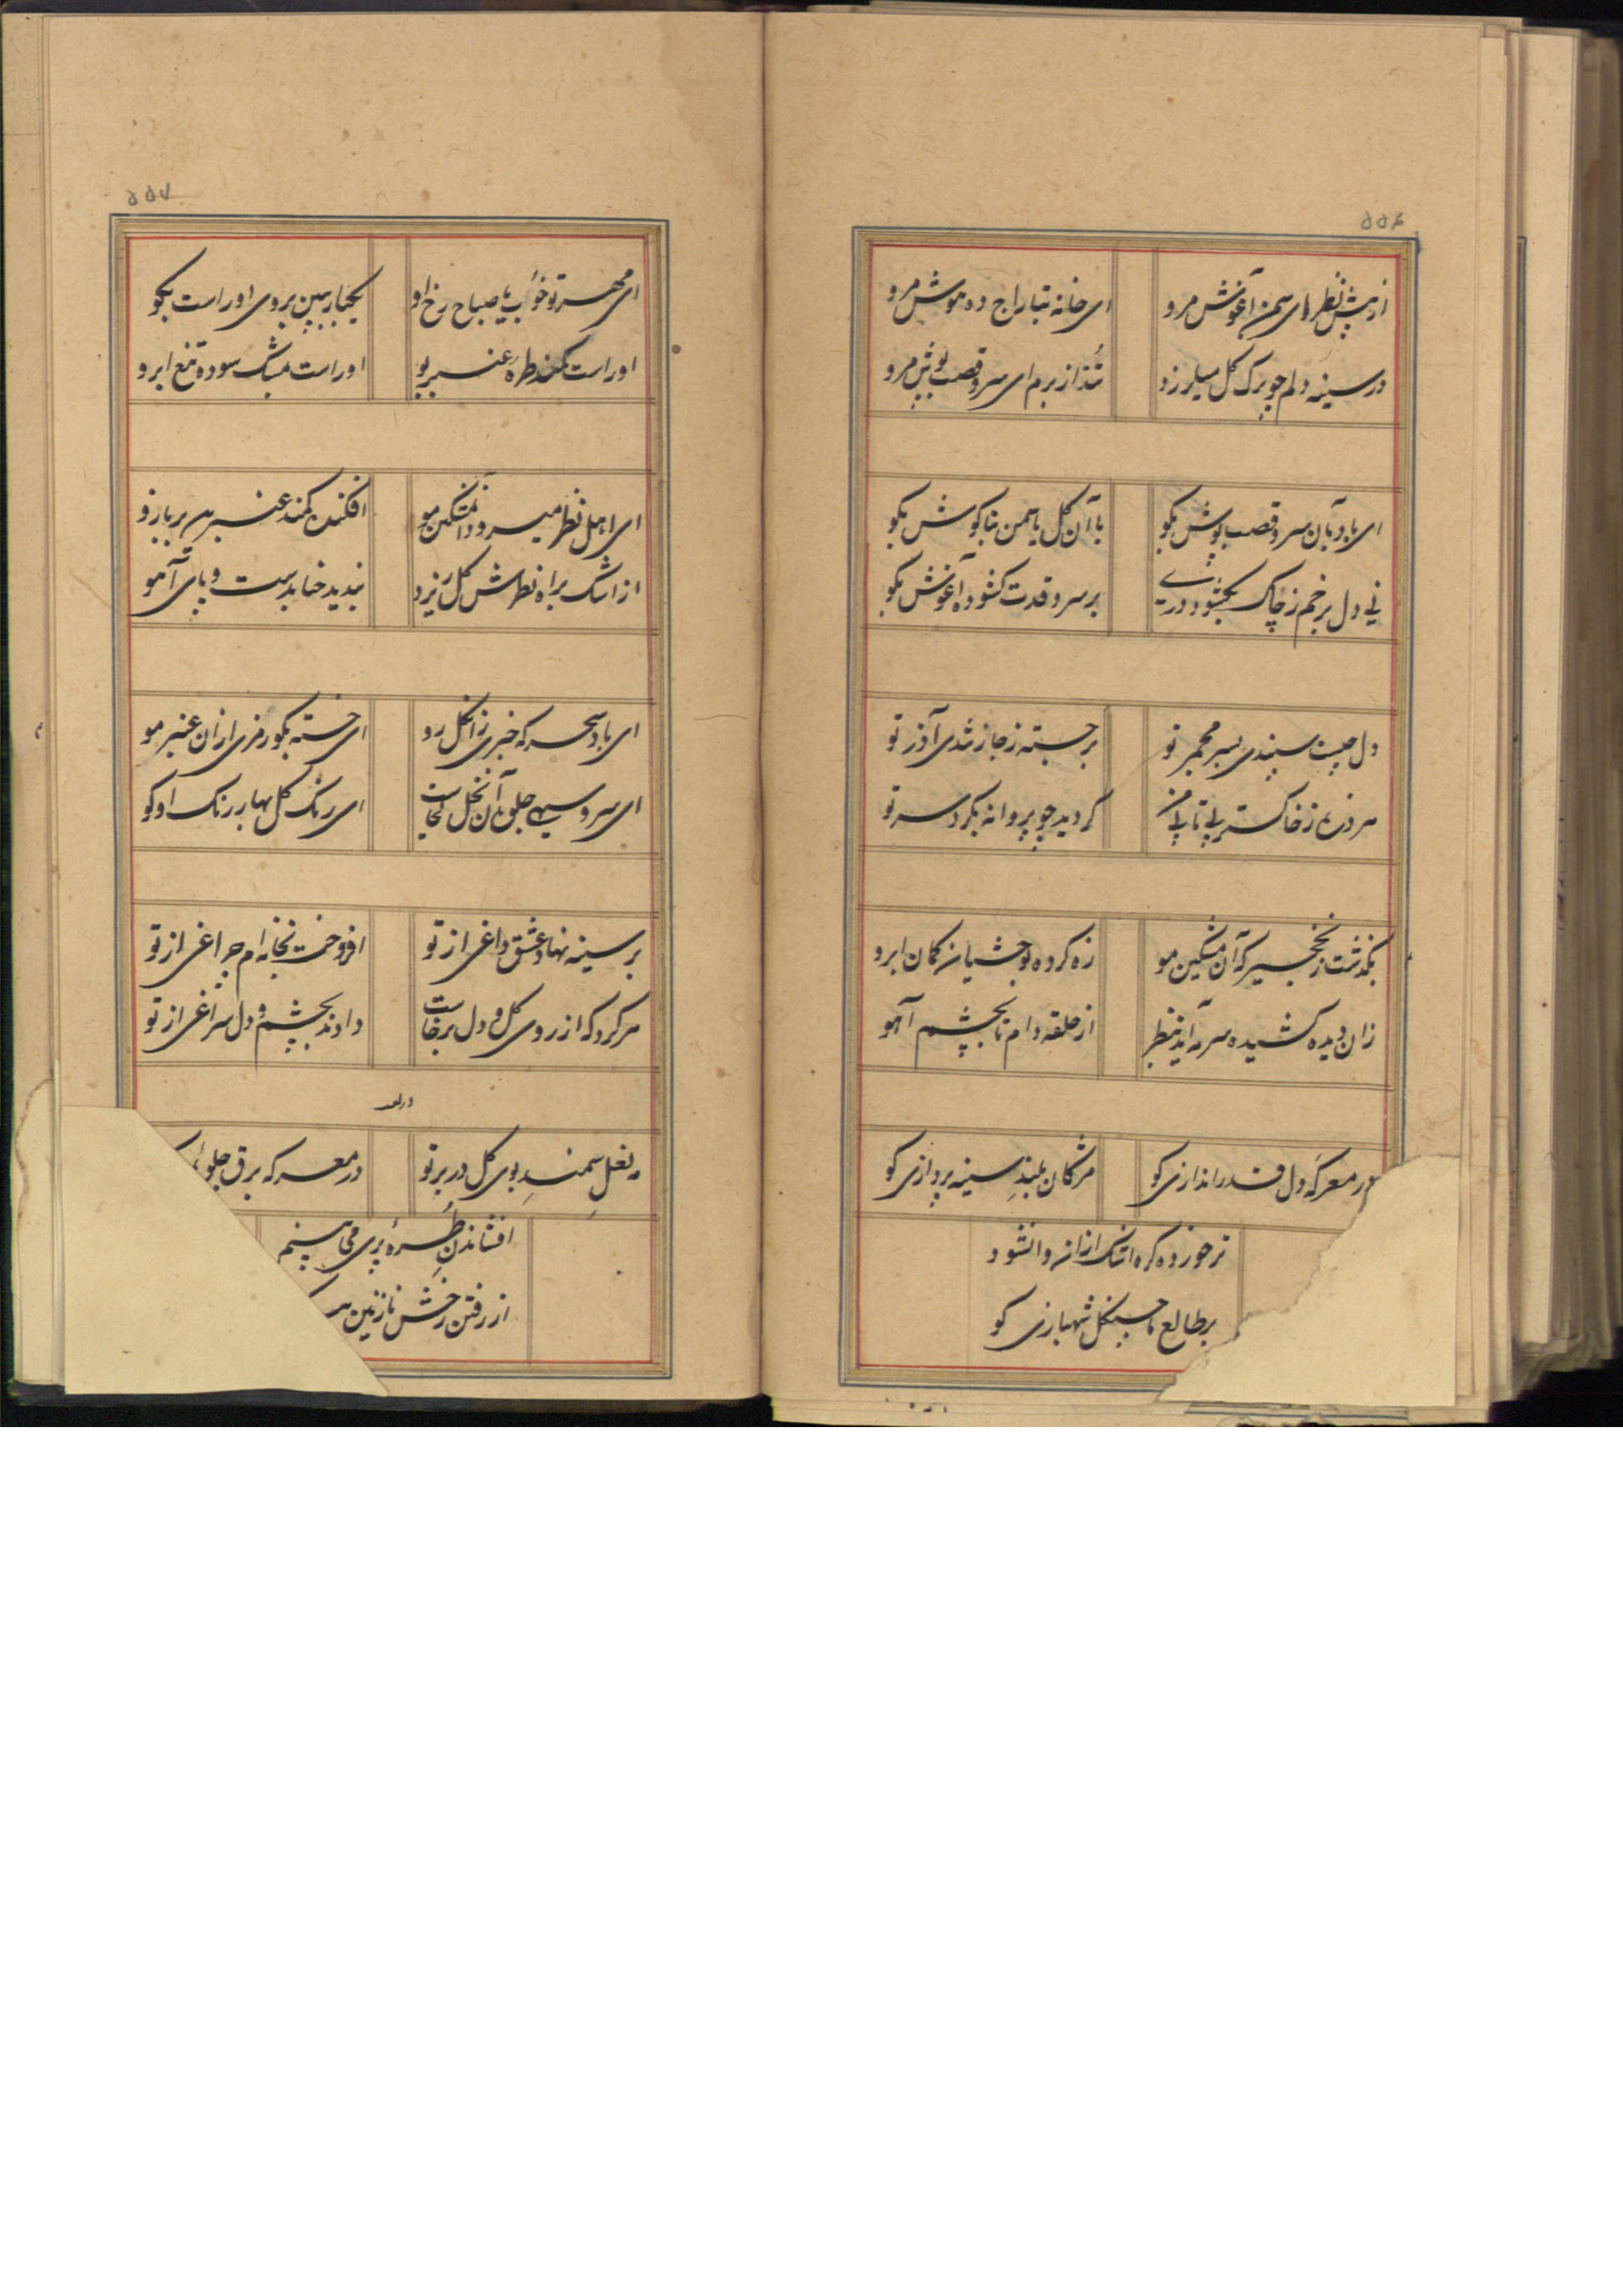 ۵۵۶
از پیش نظر ای سمن آغوش مرو ای خانه بتاراج ده هوش مرو
در سینه دلم چو برک کل میلرزد تند از برم ای سرو قصب پوش مرو
ای باد بآن سرو قصب پوش بکو با آن کل یاسمن بناکوش بکو
نی دل بر خم ز چاک بکشود دری بر سرو قدت کشوده آغوش بکو
دل چیست سپندی بسر مجمر تو بر جسته ز جا ز تندی آذر تو
هر ذره ز خاکستر بی تابی من کردید چو پروانه بکرد سر تو
بکذشت ز نخجیر که آن مشکین مو زه کرده بوحشیان کمان ابرو
زان دیده کشیده سرمه آید بنظر از حلقه دام تا بچشم آهو
در معرکه دل قدر اندازی کو مژکان بلند سینه پردازی کو
خورده کره اشک ازان وا نشود
بر طالع ما چنکل شهبازی کو
۵۵۷
ای مهر تو خواب با صباح رخ او یکبار ببین بروی او راست بکو
او راست کمند طره عنبر بو او راست بمشک سوده تیغ ابرو
ای اهل نظر میرود آن مشکین مو افکنده کمند عنبرین بر بازو
از اشک براه نظرش کل ریزد بندید حنا بدست و پای آهو
ای باد سحر که خبری زان کل رو ای خسته بکو رمزی ازان عنبر مو
ای سرو سهی جلوه آن نخل کجاست ای رنک کل بهار رنک او کو
بر سینه نهاد عشق داغی از تو افروخت بخانه ام چراغی از تو
هر کرد که از روی کل و دل برخاست دادند بچشم و دل سراغی از تو
نعل سمند بوی کل در بر تو در معرکه برق جلوه
افشاندن طره پری می بینم
از رفتن رخش نازنین